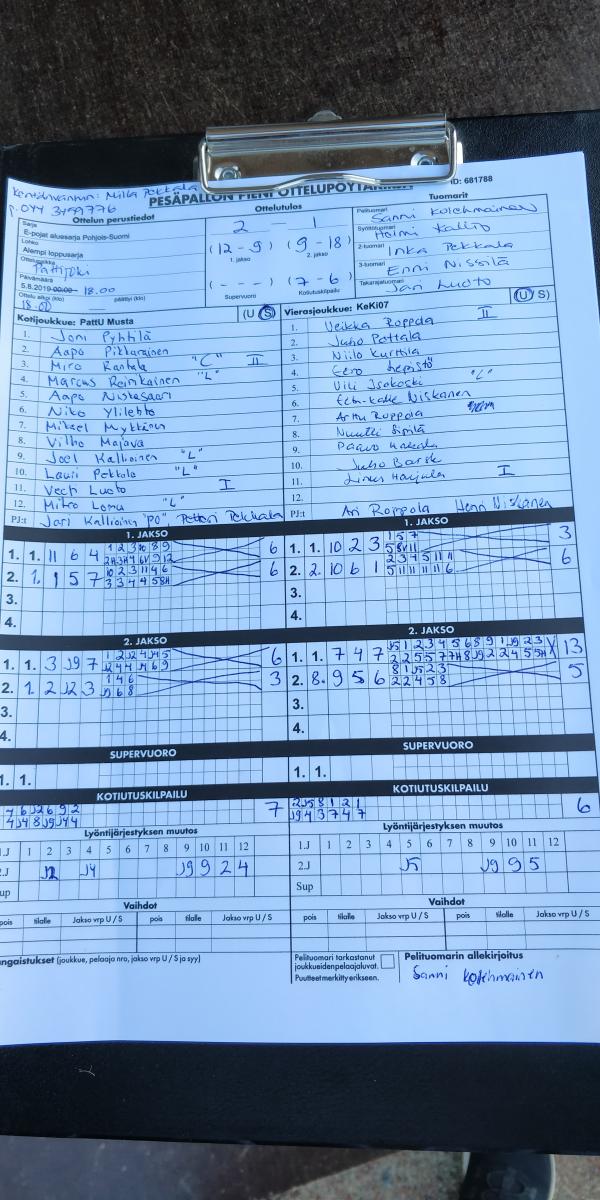 Kentänvaннin: Milla Pekkala
p. 044 3499776
PESÄPALLON PIENI OTTELUPÖYTÄKIRJA
ID: 681788
Ottelun perustiedot
Ottelutulos
Tuomarit
Sarja
E-pojat aluesarja Pohjois-Suomi
Lohko
Alempi loppusarja
Ottelupaikka
Pattijoki
Päivämäärä
5.8.2019 00:00 18.00
Ottelu alkoi (klo) päättyi (klo)
18.00
2 – 1
(12 - 9) (9 - 18)
1. jakso 2. jakso
( - - - ) (7 - 6)
Supervuoro Kotiutuskilpailu
Pelituomari
Sanni Kolehmainen
Syöttötuomari
Heimi Kallio
2-tuomari
Inka Pekkala
3-tuomari
Enni Nissilä
Takarajatuomari
Jari Luoto
Kotijoukkue: PattU Musta (U / S)
1. Joni Pyhtilä
2. Aapo Pikkarainen
3. Miro Rantala "C" II
4. Marcus Reinikainen "L"
5. Aapo Niskasaari
6. Niko Ylilehto
7. Mikael Myktänen
8. Vilho Majava
9. Joel Kallioinen "L"
10. Lauri Pekkala "L"
11. Veeti Luoto I
12. Mitro Lomu "L"
PJ:t Jari Kallioinen "PO" Petteri Pekkala
Vierasjoukkue: KeKi07 (U / S)
1. Veikka Roppola II
2. Juho Pattala
3. Niilo Kurttila
4. Eero Lepistö
5. Vili Isokoski "L"
6. Eetu-Kalle Niskanen
7. Arttu Roppola
8. Nuutti Sipilä
9. Paavo
10. Juho Barsk
11. Linus Harjula I
12.
PJ:t Ari Roppola Henri Niskanen
1. JAKSO
1. 1. 11 6 4 6
2. 1. 1 5 7 6
3.
4.
1. JAKSO
1. 1. 10 2 3 3
2. 2. 10 6 1 6
3.
4.
2. JAKSO
1. 1. 3 J9 7 6
2. 1. 2 J2 3 3
3.
4.
2. JAKSO
1. 1. 7 4 7 13
2. 8. 9 5 6 5
3.
4.
SUPERVUORO
1. 1.
SUPERVUORO
1. 1.
KOTIUTUSKILPAILU
7
KOTIUTUSKILPAILU
2 J5 8 1 2 1
J9 4 3 7 4 7
6
Lyöntijärjestyksen muutos
1.J 1 2 3 4 5 6 7 8 9 10 11 12
2.J J2 J4 J9 9 2 4
Sup
Lyöntijärjestyksen muutos
1.J 1 2 3 4 5 6 7 8 9 10 11 12
2.J J5 J9 9 5
Sup
Vaihdot
pois tilalle Jakso vrp U / S pois tilalle Jakso vrp U / S
Vaihdot
pois tilalle Jakso vrp U / S pois tilalle Jakso vrp U / S
ngaistukset (joukkue, pelaaja nro, jakso vrp U / S ja syy)
Pelituomari tarkastanut
joukkueiden pelaajaluvat.
Puutteet merkitty erikseen.
Pelituomarin allekirjoitus
Sanni Kolehmainen